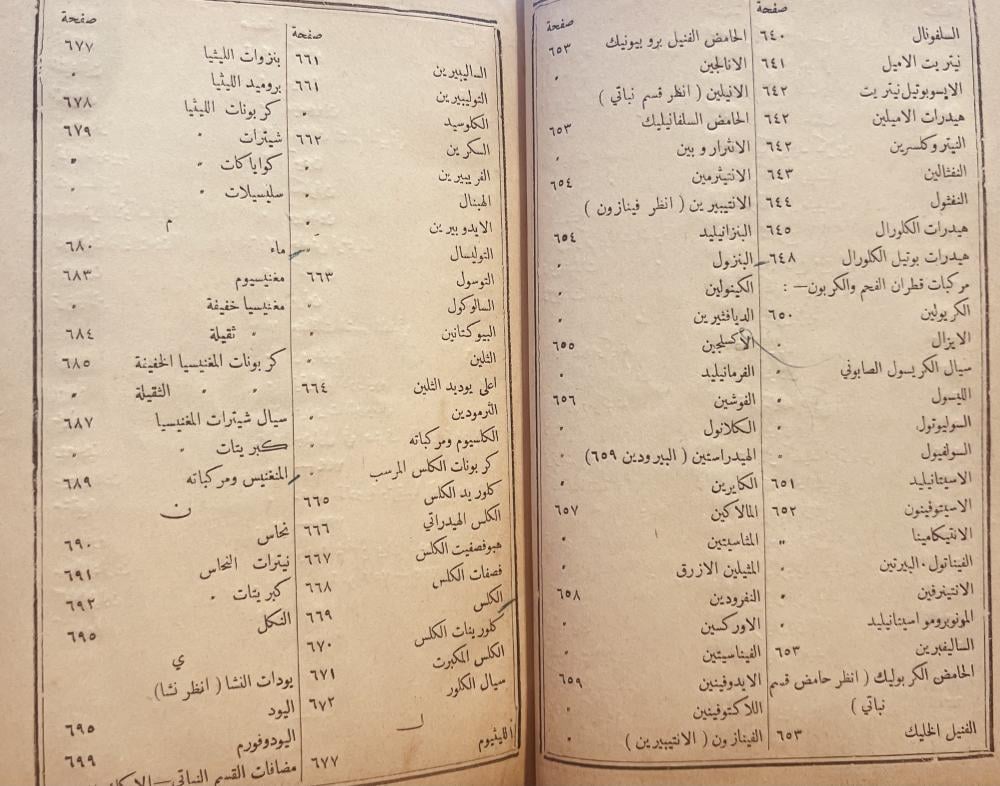 صفحة
السلفونال ٦٤٠
نيتريت الاميل ٦٤١
الايسوبوتيل نيتريت ٦٤٢
هيدرات الاميلين ٦٤٢
النيتروكلسرين ٦٤٢
النفثالين ٦٤٣
النفثول ٦٤٤
هيدرات الكلورال ٦٤٥
هيدرات بوتيل الكلورال ٦٤٨
مركبات قطران الفحم والكربون— :
الكريولين ٦٥٠
الايزال "
سيال الكريسول الصابوني "
الليسول "
السوليوتول "
السولفيول "
الاسيتانيليد ٦٥١
الاسيتوفينون ٦٥٢
الانتيكامينا "
الفيناتول · البيرتين "
الانتينرفين "
المونوبرومو اسيتانيليد "
الساليفبرين ٦٥٣
الحامض الكربوليك ( انظر حامض قسم
نباتي )
الفنيل الخليك ٦٥٣
صفحة
الحامض الفنيل بروبيونيك ٦٥٣
الانالجين "
الانيلين ( انظر قسم نباتي )
الحامض السلفانيليك ٦٥٣
الانثراروبين "
الانتيثرمين ٦٥٤
الانتيبيرين ( انظر فينازون )
البنزانيليد ٦٥٤
البنزول "
الكينولين "
الديافثيرين "
الاكسلجين ٦٥٥
الفرمانيليد "
الفوشين ٦٥٦
الكلانول "
الهيدراستين ( البيرودين ٦٥٩ ) "
الكايرين "
المالاكين ٦٥٧
المثاسيتين "
المثيلين الازرق "
النفرودين ٦٥٨
الاوركسين "
الفيناسيتين "
الايدوفينين ٦٥٩
اللاكتوفينين "
الفينازون ( الانتيبيرين ) "
صفحة
الساليبيرين ٦٦١
التوليبيرين ٦٦١
الكلوسيد "
السكرين ٦٦٢
الفريبيرين "
الهبنال "
الايدوبيرين "
التوليسال "
التوسول ٦٦٣
السالوكول "
البيوكتانين "
الثلين "
اعلى يوديد الثلين ٦٦٤
الثرمودين "
الكاسيوم ومركباته "
كربونات الكلس المرسب "
كلوريد الكلس ٦٦٥
الكلس الهيدراتي ٦٦٦
هبوفصفيت الكلس ٦٦٧
فصفات الكلس ٦٦٨
الكلس ٦٦٩
كلورينات الكلس ٦٧٠
الكلس المكبرت ٦٧١
سيال الكلور ٦٧٢
ل
الليثيوم ٦٧٧
صفحة
بنزوات الليثيا ٦٧٧
بروميد الليثيا "
كربونات الليثيا ٦٧٨
شيترات " ٦٧٩
كواياكات " "
سليسيلات " "
م
ماء ٦٨٠
مغنيسيوم ٦٨٣
مغنيسيا خفيفة "
" ثقيلة ٦٨٤
كربونات المغنيسيا الخفيفة ٦٨٥
" " الثقيلة "
سيال شيترات المغنيسيا ٦٨٧
كبريتات " "
المنغنيس ومركباته ٦٨٩
ن
نحاس ٦٩٠
نيترات النحاس ٦٩١
كبريتات " ٦٩٢
النكل ٦٩٥
ي
يودات النشا ( انظر نشا )
اليود ٦٩٥
اليودوفورم ٦٩٩
مضافات القسم النباتي—